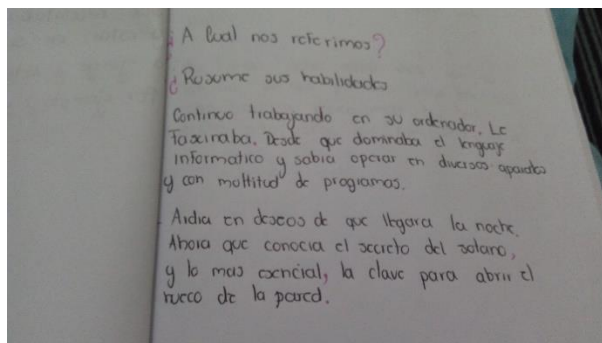 ¿A Cual nos referimos?
¿Resume sus habilidades
Continuo trabajando en su ordenador. Le
Fascinaba. Desde que dominaba el lenguaje
informatico y sabia operar en diversos aparatos
y con moltitud de programas.
Ardia en deseos de que llegara la noche.
Ahora que conocia el secreto del sotano,
y lo mas esencial, la clave para abrir el
hueco de la pared.